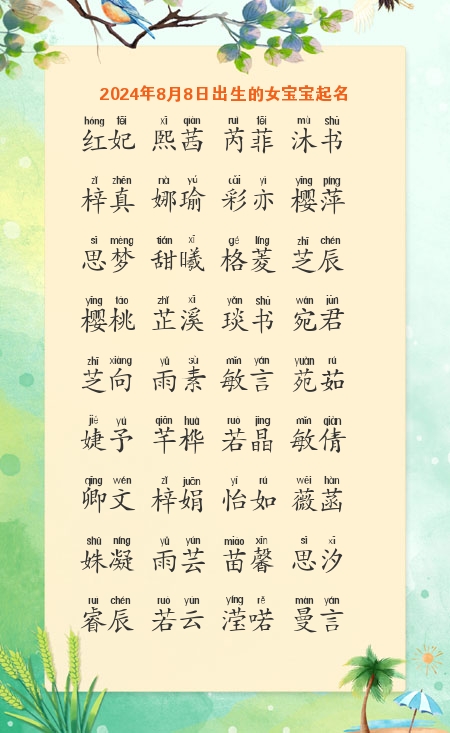 2024年8月8日出生的女宝宝起名
hóng fēi xī qiàn ruì fēi mù shū
红妃 熙茜 芮菲 沐书
zǐ zhēn nà yú cǎi yì yīng píng
梓真 娜瑜 彩亦 樱萍
sī mèng tián xī gé líng zhī chén
思梦 甜曦 格菱 芝辰
yīng táo zhǐ xī yǎn shū wǎn jūn
樱桃 芷溪 琰书 宛君
zhī xiàng yǔ sù mǐn yán yuàn rú
芝向 雨素 敏言 苑茹
jié yú qiān huà ruò jīng mǐn qiàn
婕予 芊桦 若晶 敏倩
qīng wén zǐ juān yí rú wēi hàn
卿文 梓娟 怡如 薇菡
shū níng yǔ yún miáo xīn sī xī
姝凝 雨芸 苗馨 思汐
ruì chén ruò yún yíng rě màn yán
睿辰 若云 滢喏 曼言